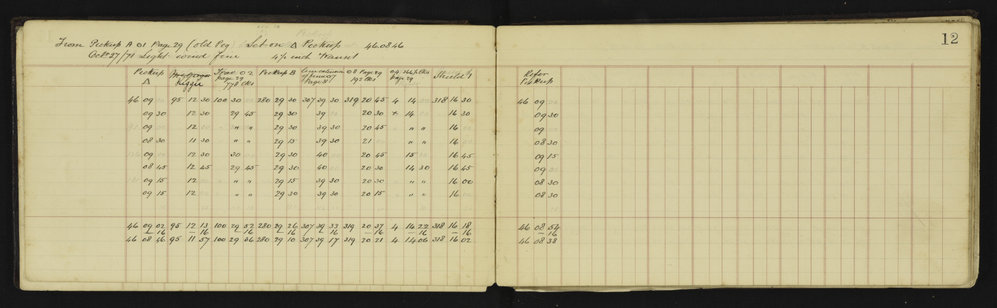 12
From Pickup A 01 Page 29 (old Peg) Set on Δ Pickup 46.08.46
Octr 27/74 Light wind fine 4½ inch Transit
Pickup Δ Pickup B 08 Page 29 Shields Refer Pickup
46 09 95 12 30 100 30 280 29 30 307 39 30 319 20 45 4 14 318 16 30 46 09
09 30 12 30 29 45 29 30 39 20 30 4 14 16 09 30
09 12 " " 29 30 39 30 20 45 " " 16 09
08 30 11 30 " " 29 15 39 30 21 " " 16 08 30
09 12 30 30 29 30 40 20 45 15 16 45 09 15
08 45 12 45 29 45 29 30 40 20 30 14 30 16 45 08 30
09 15 12 " " 29 15 39 30 20 30 " " 16 00 08 30
09 15 12 " " 29 30 39 30 20 15 " " 16 08 30
46 09 02 95 12 13 100 29 52 280 29 26 307 39 33 319 20 37 4 14 22 318 16 18 46 08 54
— 16 — 16 — 16 — 16 — 16 — 16 — 16 — 16 — 16
46 08 46 95 11 57 100 29 36 280 29 10 307 39 17 319 20 21 4 14 06 318 16 02 46 08 38